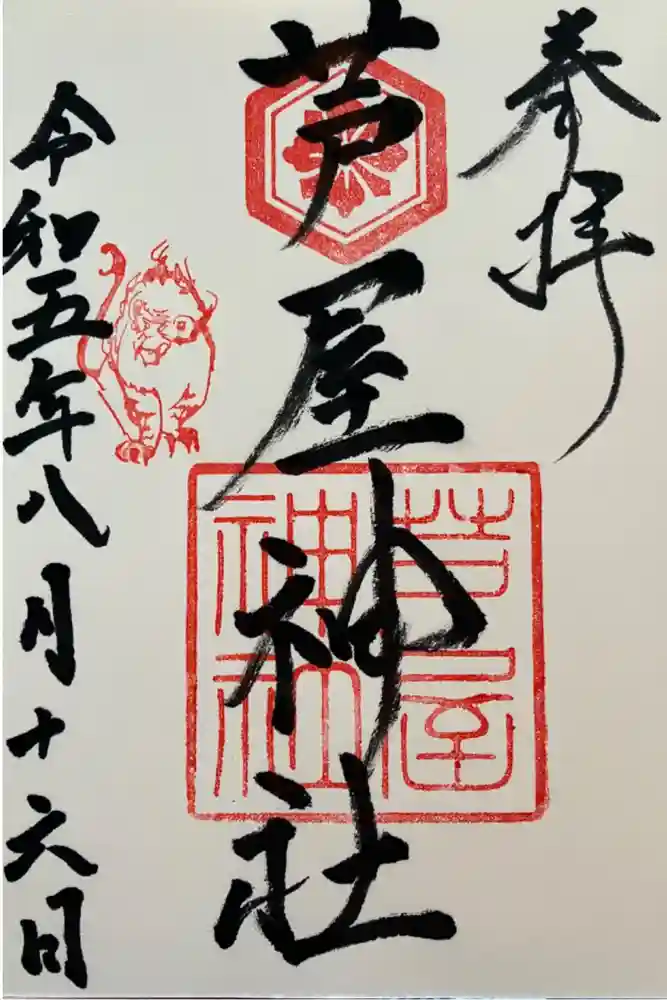 奉拝
芦屋神社
芦屋
神社
令和五年八月十六日